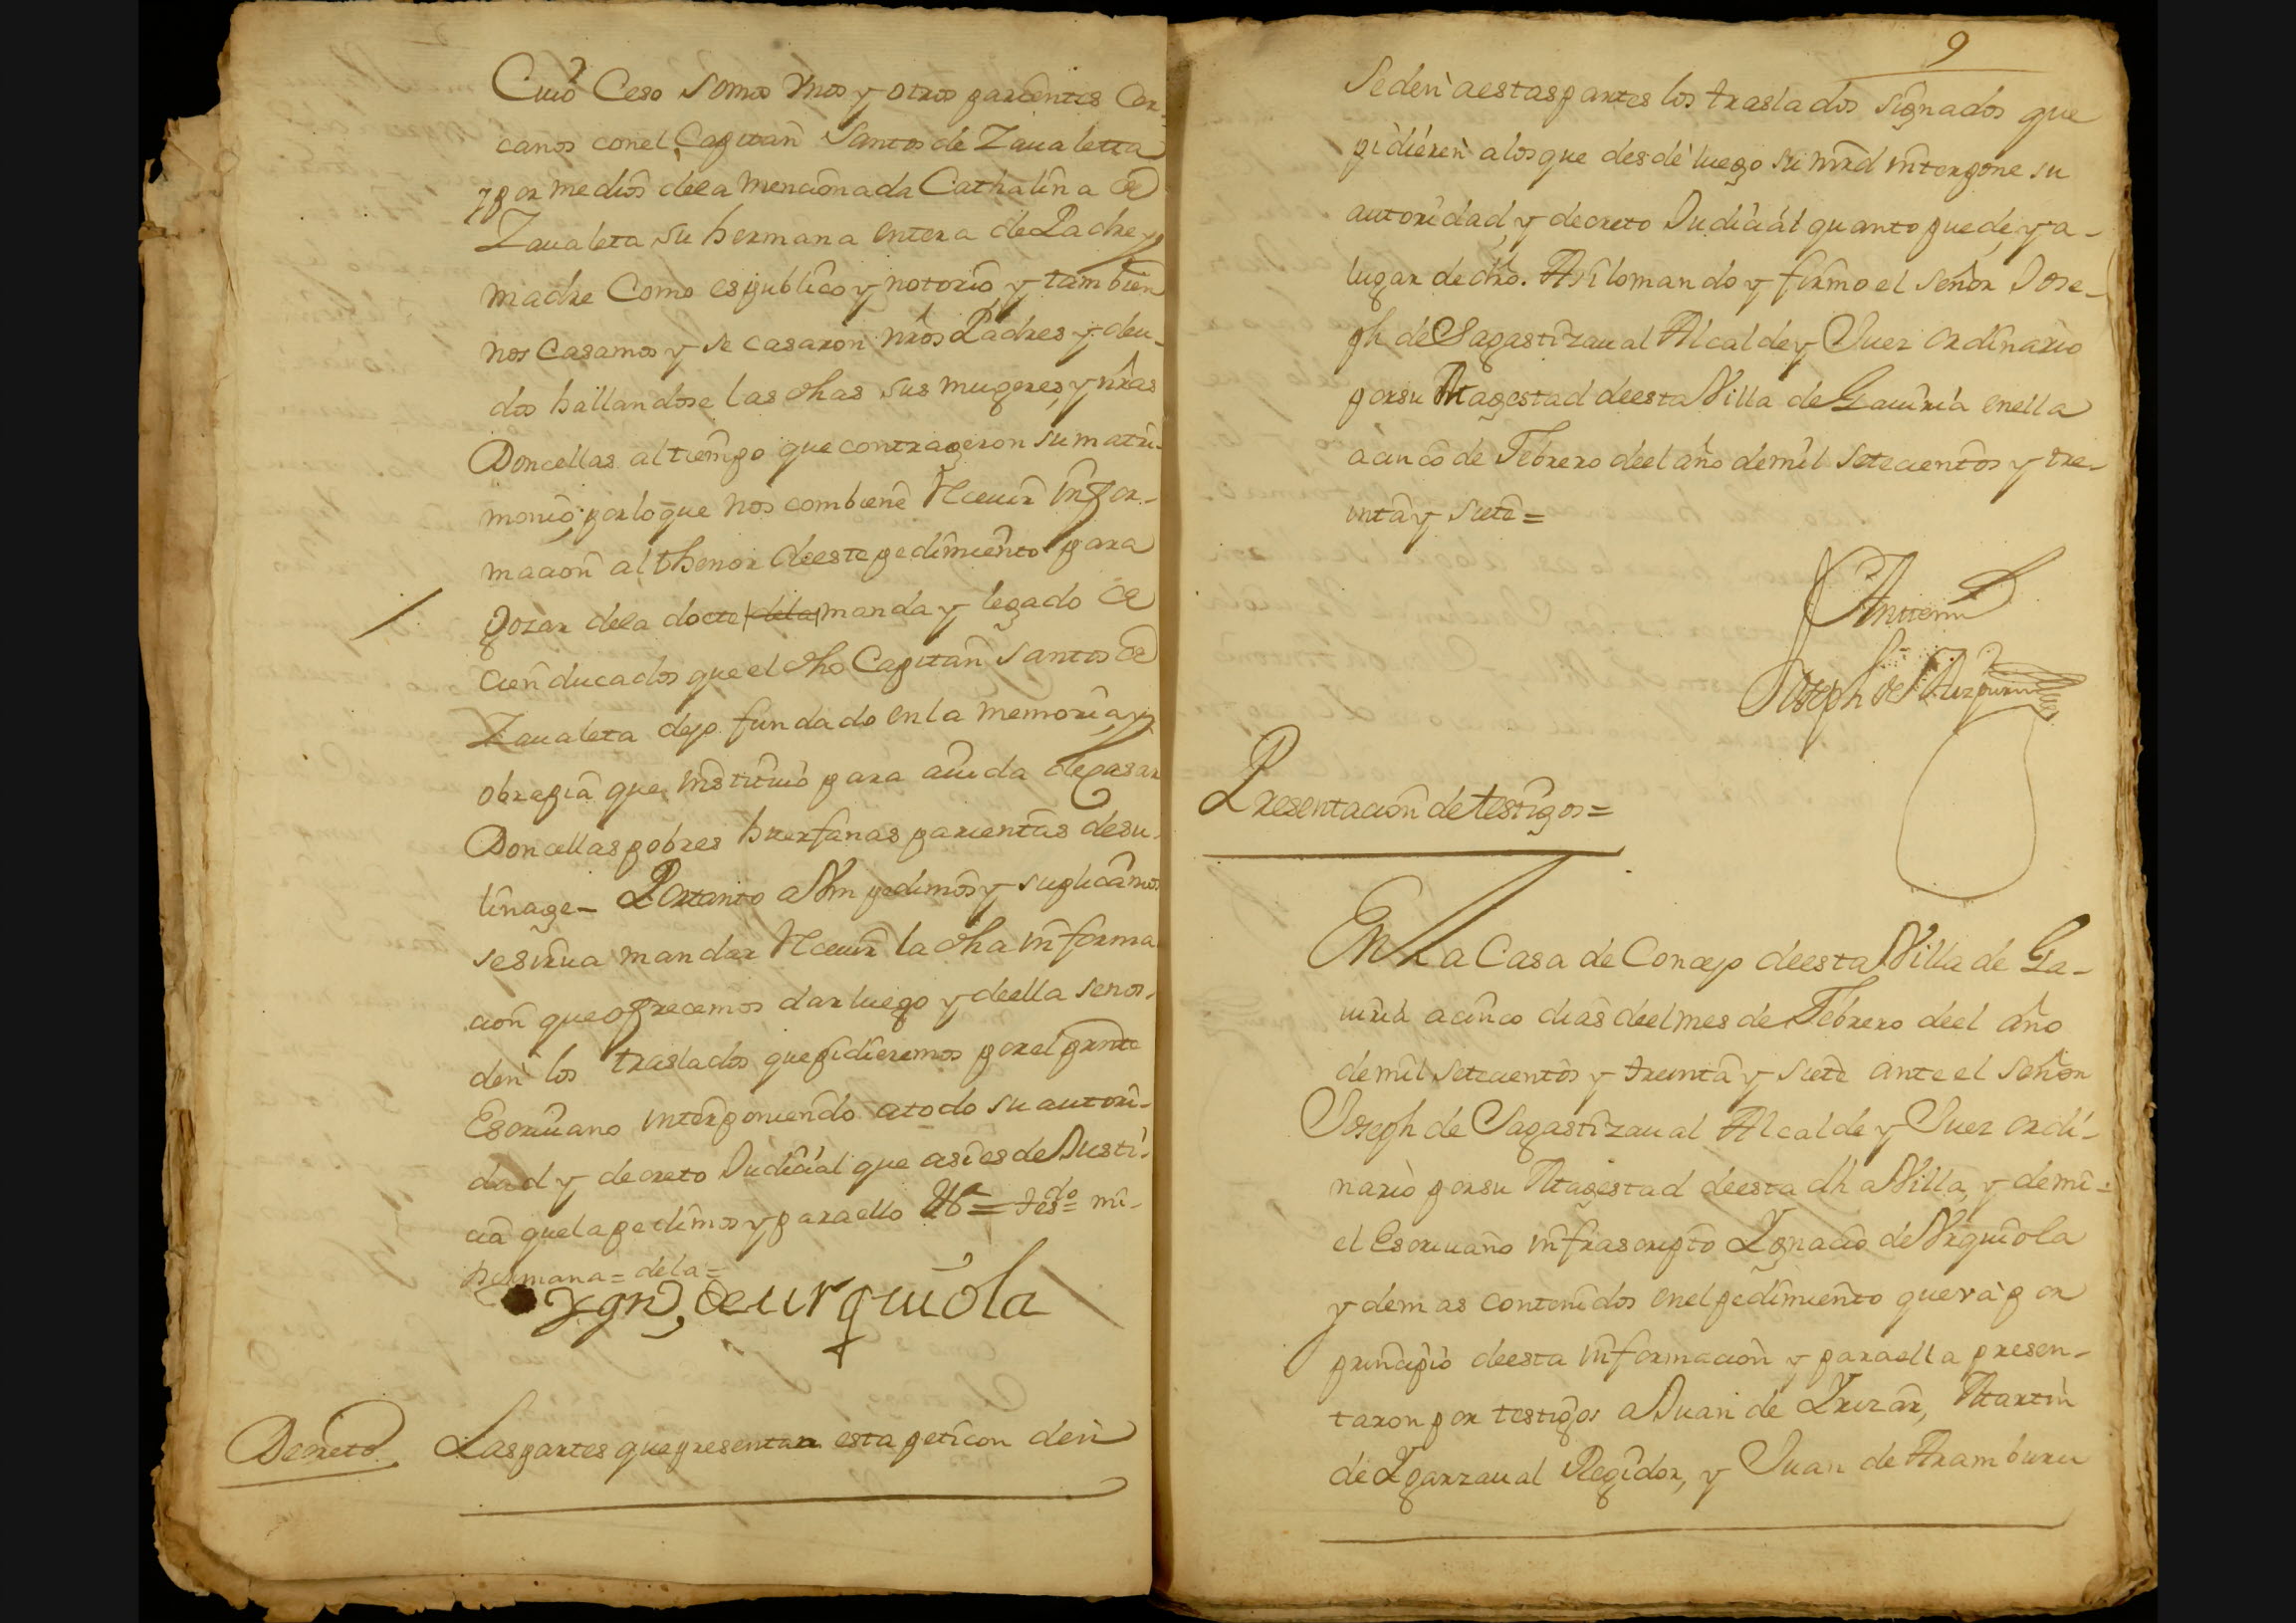 Cuio Ceso somos Unos y otros parientes Cer-
canos con el Capitan Santos de Zaualetta
y por medios de la mencionada Cathalina de
Zaualeta su hermana entera de Padre y
madre Como es publico y notorio y tambien
nos Casamos y se casaron nros Padres y deu-
dos hallandose las dhas sus mugeres, y nras
Doncellas al tiempo que contrageron su matri-
monio, por lo que nos combiene Receuir Infor-
macion al thenor de este pedimiento para
gozar de la docte de la manda y legado de
cien ducados que el dho Capitan Santos de
Zaualeta dejo fundado en la memoria, y
obrapia que instituio para aiuda de casar
Doncellas pobres huerfanas parientas de su
linage - Por tanto a Vm pedimos y suplicamos
se sirua mandar Receuir la dha informa
cion que ofrecemos dar luego y de ella se nos
den los traslados que pidieremos por el prnte
Escriuano interponiendo a todo su autori-
dad y decreto Judicial que asi es de Justi-
cia que la pedimos y para ello = tesdo = mi-
hermana = de la =
Ygnº de urquiola
Decreto Las partes que presentan esta peticon den
9
Se den a estas partes los traslados signados que
pidieren a los que desde luego su mrd interpone su
autoridad, y decreto Judicial quanto puede, y a-
lugar de dro. Asi lo mando y firmo el señor Jose-
ph de Sagastizaual Alcalde y Juez ordinario
por su Magestad de esta Villa de Gauiria en ella
a cinco de Febrero de el año de mil setecientos y tre-
inta y siete =
Antemi
Joseph de Aizpuru
Presentacion de testigos =
En La Casa de Concejo de esta Villa de Ga-
uiria a cinco dias de el mes de Febrero de el año
de mil setecientos y treinta y siete ante el señor
Joseph de Sagastizaual Alcalde y Juez ordi-
nario por su Magestad de esta dha Villa, y de mi =
el Escriuano infrascripto Ygnacio de Vrquiola
y demas contenidos en el pedimiento que va por
principio de esta informacion y para ella presen-
taron por testigos a Juan de Yrizar, Martin
de Ygarzaual Regidor, y Juan de Aramburu